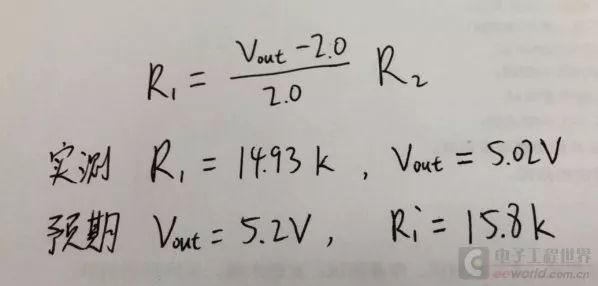 R₁ = (Vout - 2.0) / 2.0 R₂
实测 R₁ = 14.93 k , Vout = 5.02V
预期 Vout = 5.2V , R₁' = 15.8 k
电子工程世界
eeworld.com.cn